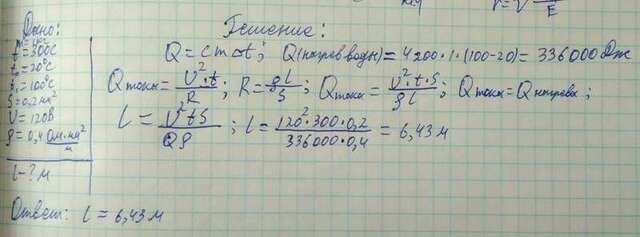 Дано:
t = 300с
t₀ = 20°C
t₁ = 100°C
S = 0,2 мм²
U = 120В
ρ = 0,4 Ом·мм²/м
l - ? м
Решение:
Q = cmΔt; Q(нагрев воды) = 4200·1·(100-20) = 336000 Дж
Qтока = U²·t/R; R = ρl/S; Qтока = U²·t·S/ρl; Qтока = Qнагрева;
l = U²tS/Qρ; l = 120²·300·0,2/336000·0,4 = 6,43 м
Ответ: l = 6,43 м